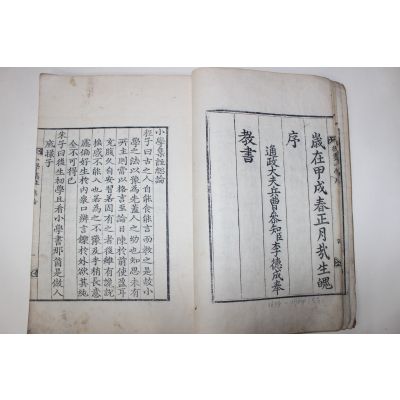 歲在甲戌春正月哉生魄
序
通政大夫兵曹參知臣李德成奉
敎書
小學集註總論
程子曰古之人自能食能言而敎之是故小
學之法以豫爲先蓋人之幼也知思未有
所主則當以格言至論日陳於前使盈耳
充腹久自安習若固有之者後雖有讒說
搖惑不能入也若爲之不豫及乎稍長意
慮偏好生於內衆口辯言鑠於外欲其純
全不可得已
朱子曰後生初學且看小學書那箇是做人
底樣子